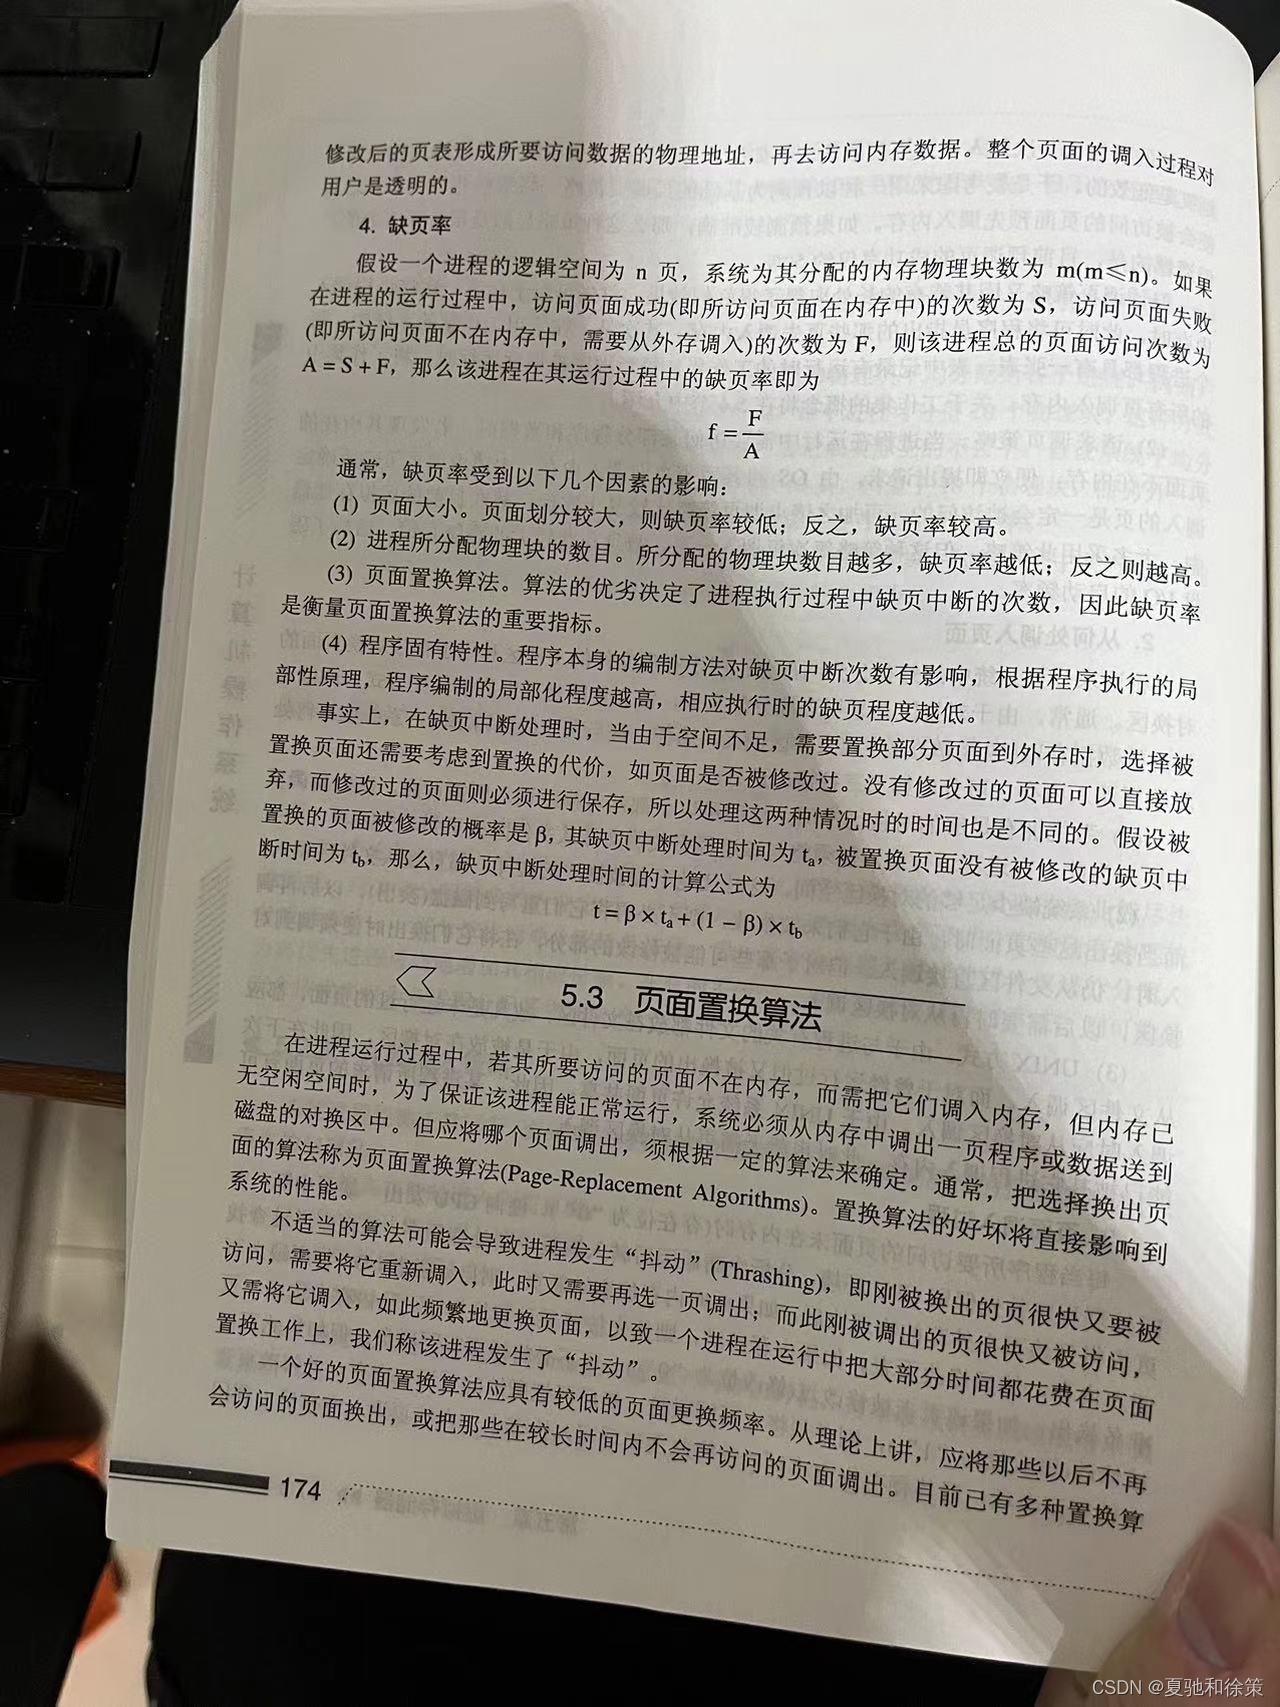 修改后的页表形成所要访问数据的物理地址，再去访问内存数据。整个页面的调入过程对
用户是透明的。
4. 缺页率
假设一个进程的逻辑空间为 n 页，系统为其分配的内存物理块数为 m(m≤n)。如果
在进程的运行过程中，访问页面成功(即所访问页面在内存中)的次数为 S，访问页面失败
(即所访问页面不在内存中，需要从外存调入)的次数为 F，则该进程总的页面访问次数为
A = S + F，那么该进程在其运行过程中的缺页率即为
f = F/A
通常，缺页率受到以下几个因素的影响：
(1) 页面大小。页面划分较大，则缺页率较低；反之，缺页率较高。
(2) 进程所分配物理块的数目。所分配的物理块数目越多，缺页率越低；反之则越高。
(3) 页面置换算法。算法的优劣决定了进程执行过程中缺页中断的次数，因此缺页率
是衡量页面置换算法的重要指标。
(4) 程序固有特性。程序本身的编制方法对缺页中断次数有影响，根据程序执行的局
部性原理，程序编制的局部化程度越高，相应执行时的缺页程度越低。
事实上，在缺页中断处理时，当由于空间不足，需要置换部分页面到外存时，选择被
置换页面还需要考虑到置换的代价，如页面是否被修改过。没有修改过的页面可以直接放
弃，而修改过的页面则必须进行保存，所以处理这两种情况时的时间也是不同的。假设被
置换的页面被修改的概率是 β，其缺页中断处理时间为 tₐ，被置换页面没有被修改的缺页中
断时间为 t_b，那么，缺页中断处理时间的计算公式为
t = β × tₐ + (1 − β) × t_b
5.3 页面置换算法
在进程运行过程中，若其所要访问的页面不在内存，而需把它们调入内存，但内存已
无空闲空间时，为了保证该进程能正常运行，系统必须从内存中调出一页程序或数据送到
磁盘的对换区中。但应将哪个页面调出，须根据一定的算法来确定。通常，把选择换出页
面的算法称为页面置换算法(Page-Replacement Algorithms)。置换算法的好坏将直接影响到
系统的性能。
不适当的算法可能会导致进程发生“抖动”(Thrashing)，即刚被换出的页很快又要被
访问，需要将它重新调入，此时又需要再选一页调出；而此刚被调出的页很快又被访问，
又需将它调入，如此频繁地更换页面，以致一个进程在运行中把大部分时间都花费在页面
置换工作上，我们称该进程发生了“抖动”。
一个好的页面置换算法应具有较低的页面更换频率。从理论上讲，应将那些以后不再
会访问的页面换出，或把那些在较长时间内不会再访问的页面调出。目前已有多种置换算
174
CSDN @夏驰和徐策